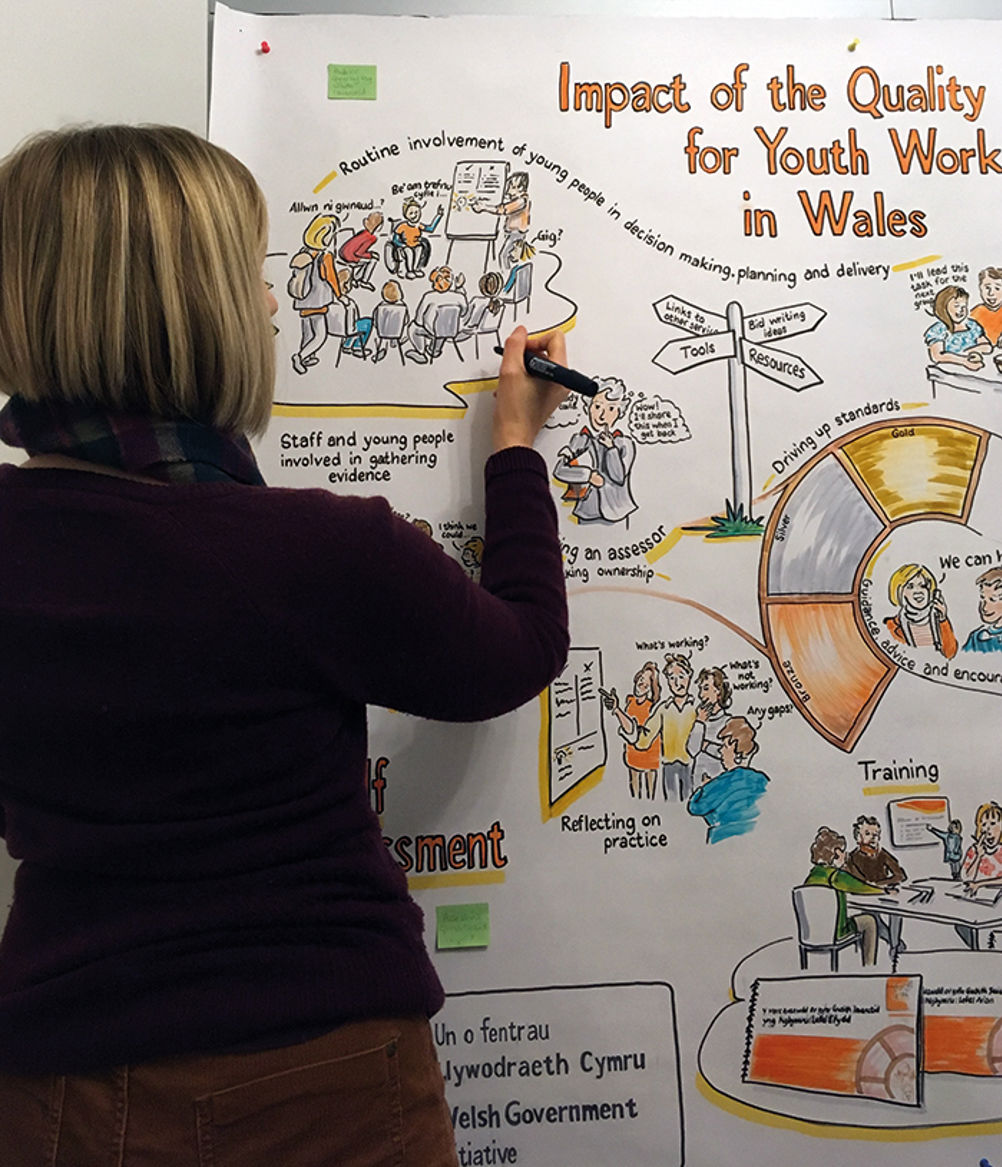 Impact of the Quality
for Youth Work
in Wales
Routine involvement of young people in decision making, planning and delivery
Allwn ni gwneud..?
Be' am trefnu
cyfle i...
Gig?
I'll lead this
task for the
next
group
Links to
other service
Bid writing
ideas
Tools
Resources
Staff and young people
involved in gathering
evidence
Wow!
I'll share
this when I
get back
I think we
could...
ng an assessor
king ownership
Driving up standards
Gold
Silver
Bronze
We can h
Guidence, advice and encour
What's working?
What's
not
working?
Any gaps?
Reflecting on
practice
lf
ssment
Training
Un o fentrau
Llywodraeth Cymru
Welsh Government
itiative